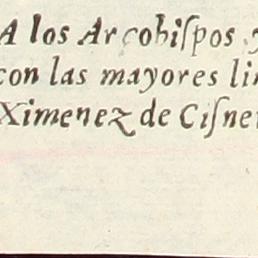 A los Arçobiſpos y
con las mayores li
Ximenez de Ciſne